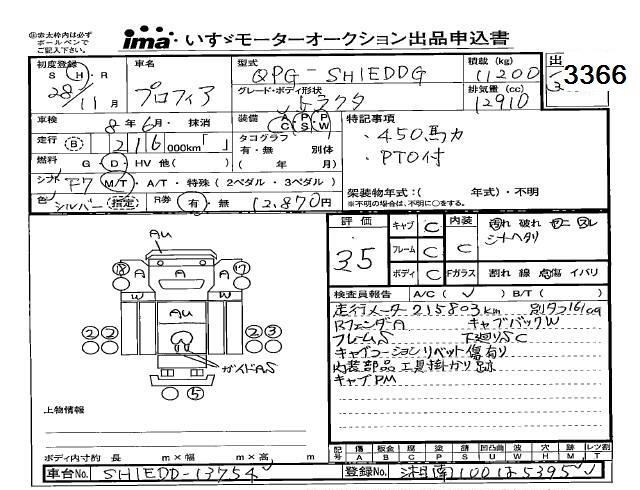 ㊟赤太枠内は必ず
ボールペンで
ご記入下さい。
ima・いすゞモーターオークション出品申込書
初度登録 S・H・R 28/11月
車名 プロフィア
型式 QPG-SH1EDDG
グレード・ボディ形状 トラクタ
積載(kg) 11200
排気量(cc) 12910
3366
車検 8年6月・抹消
走行 B 216 000km「 」
燃料 G・D・HV 他( )
シフト F7 M/T・A/T・特殊(2ペダル・3ペダル)
色 シルバー 指定
R券 有・無 12,870円
装備 A/C P/S P/W
タコグラフ 別体
有・無
( 年 月)
特記事項
・450馬力
・PTO付
架装物年式:( 年式)・不明
※不明の場合は、不明に○をする。
評価 3.5
キャブ C
フレーム C
ボディ C
内装 C
汚れ 破れ
シートヘタリ
Fガラス 割れ 線 点傷 イバリ
検査員報告 A/C(✓) B/T( )
走行メーター 215803km
RフェンダA キャブバックW
フレームS 下廻りSC
キャブコーションリベット傷有り
内装部品工具掛カリ跡
キャブPM
Au
⑱ A A ⑰
W W
Au
② ② ② ③
ガイドAS
⑤
上物情報
ボディ内寸約 長 m×幅 m×高 m
記号 傷 A 板金 B 腐 C 塗 P 錆 S 凹凸曲 U 波 W 穴 H 跡 M レツ割 T
車台No. SH1EDD-13754
登録No. 湘南100は5395